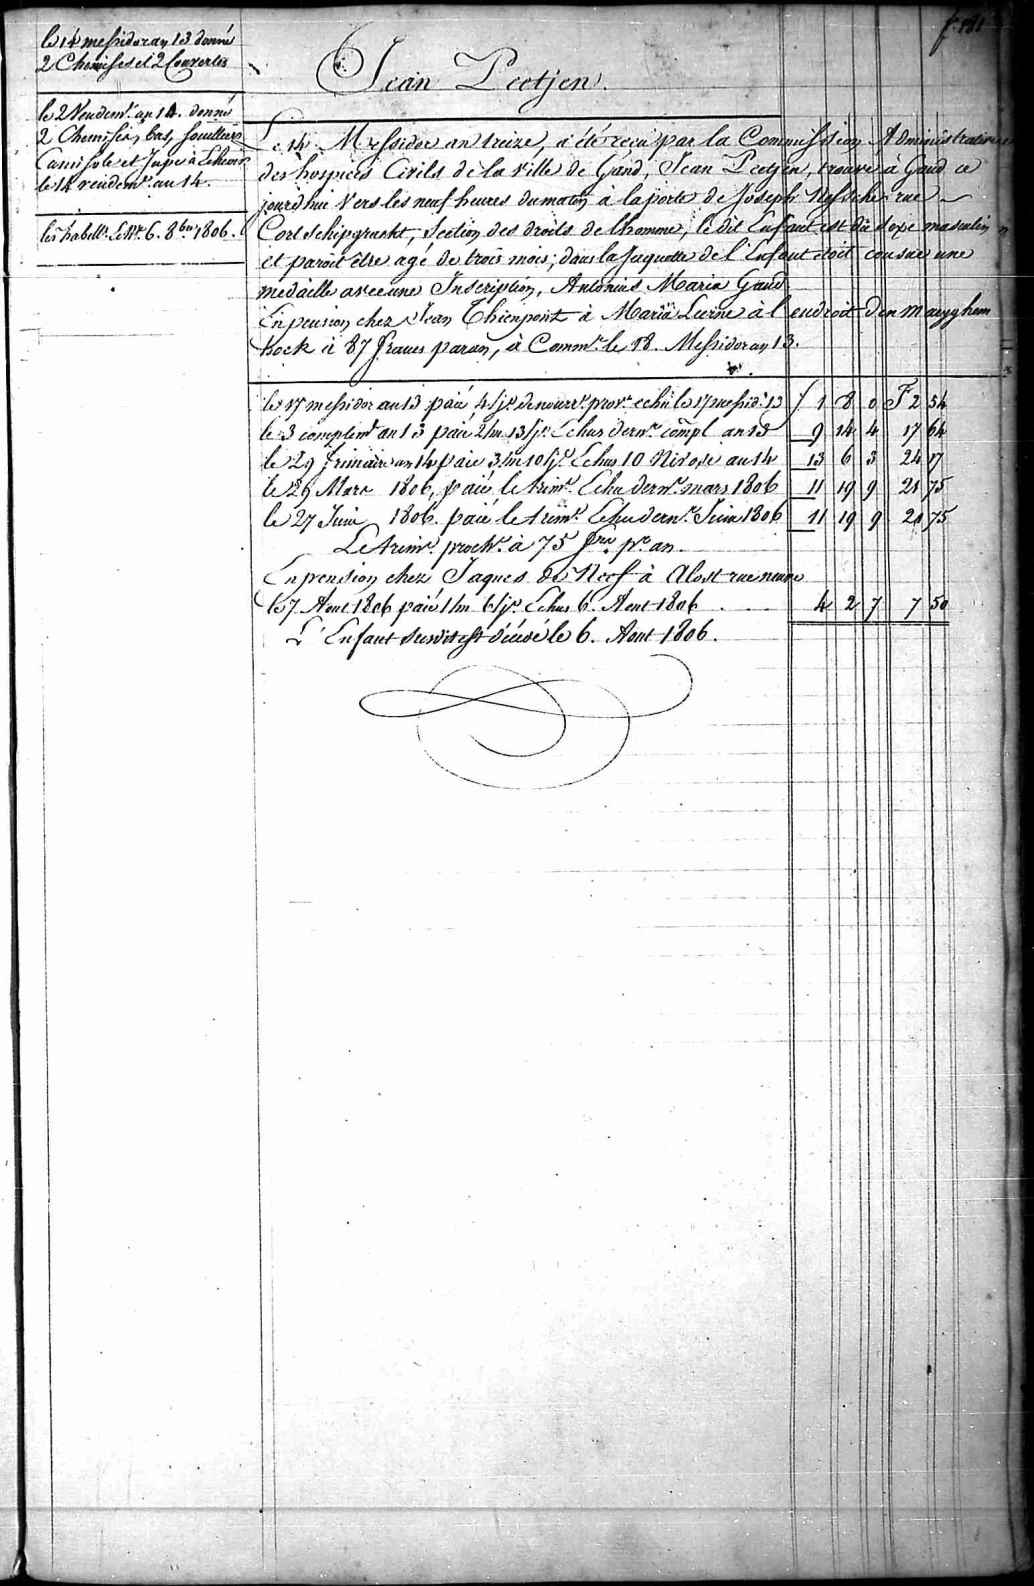 f. 151
le 14 messidor an 13 donné
2 Chemises et 2 Couvertes
le 2 Vendemre. an 14. donné
2 Chemises, bas, souilliers
Camisole et Jupe à Echeoir
le 14 vendemre. an 14.
les habellt. Echts. 6. 8bre 1806.
Jean Peetjen.
Le 14 Messidor an treize, a été reçu par la Commission Administrative
des hospices Civils de la ville de Gand, Jean Peetjen, trouvé à Gand ce
jourdhui vers les neuf heures du matin à la porte de Joseph Nyssche rue
Cortschipgracht, Section des droits de lhomme, le dit Enfant est du sexe masculin
et paroit être agé de trois mois; dans la Juquotte de l'Enfant étoit cousue une
médaille avec une Inscription, Antonius Maria Gand
En pension chez Jean Thienpont à Maria Lierne à l'endroit den maeyghem
hock à 87 francs par an, à Commr. le 18. Messidor an 13.
le 17 messidor an 13 paié 4 js. de nourre. provre. echû le 17 messidr. 13 f 1 8 0 F 2 54
le 3 complemt an 13 paié 2/m 13/js. Echus derne. compl an 13 9 14 4 17 64
le 29 frimaire an 14 paié 3/m 10/js. Echus 10 Nivose an 14 13 6 3 24 17
le 29 Mars 1806, paié le trime. Echu derne. mars 1806 11 19 9 21 75
le 27 Juin 1806. paié le trime. Echu derne. Juin 1806 11 19 9 21 75
Le trime. prochn. à 75 frcs. pr. an.
En pension chez Jaques de Neef à Alost rue neuve
le 7 Aout 1806 paié 1/m 6/js. Echus 6. Aout 1806 . . 4 2 7 7 50
L'Enfant susdit est décédé le 6. Aout 1806.